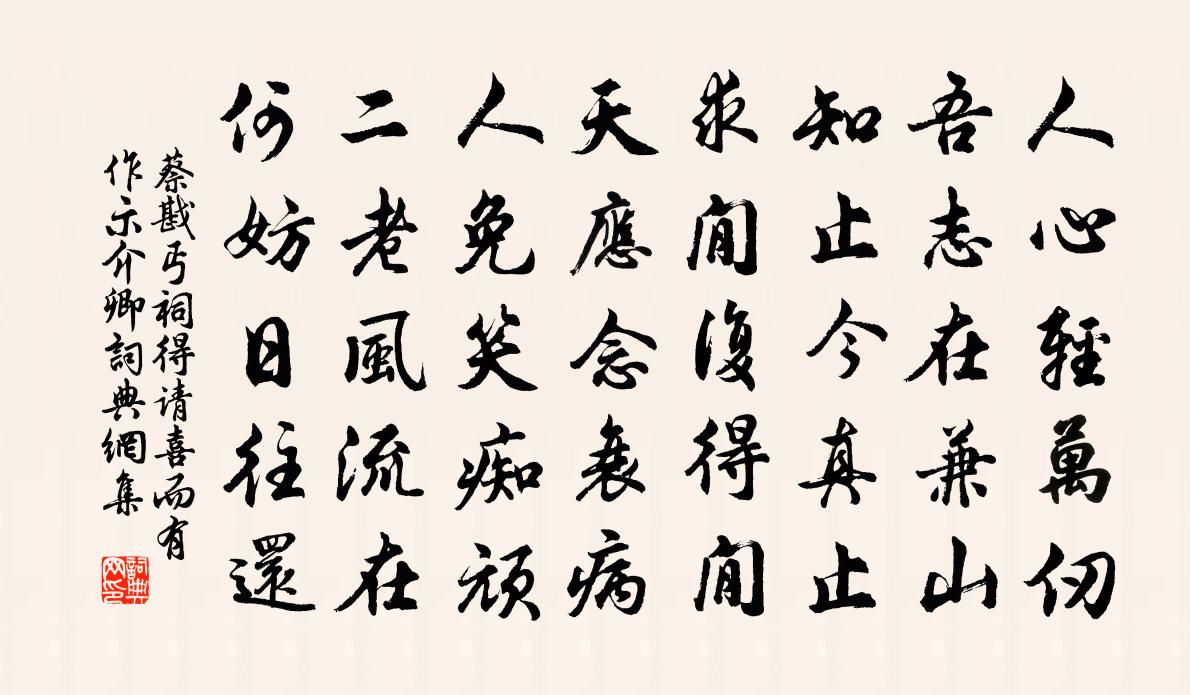 人心輕萬仞
吾志在兼山
知止今真止
求閒復得閒
天應念衰病
人免笑痴頑
二老風流在
何妨日往還
蔡戡丐祠得请喜而有
作示介卿詞典網集
詞典
网印